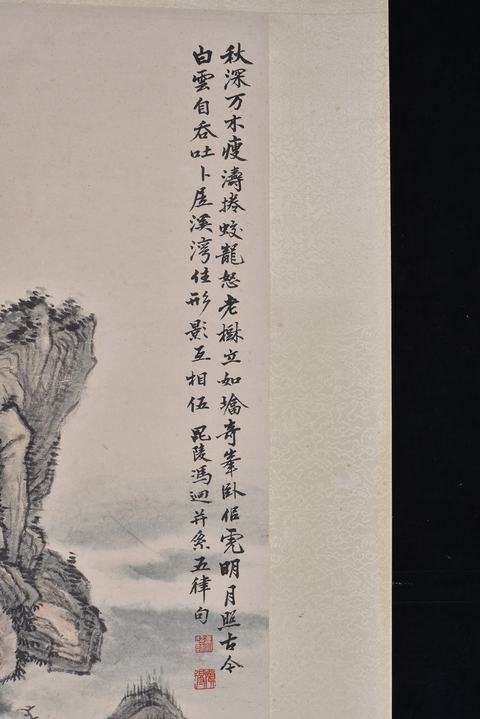 秋深万木瘦濤捲蛟龍怒老樹立如墻奇峯臥似虎明月照古今
白雲自吞吐卜居溪灣住形影互相伍毘陵馮迥并系五律句